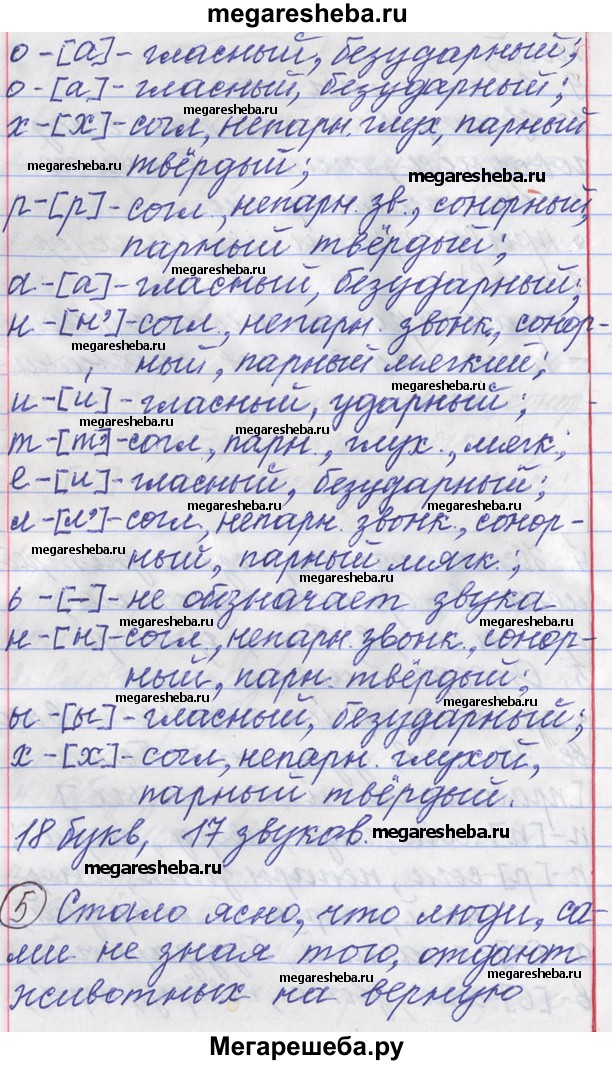 megaresheba.ru
о-[а]-гласный, безударный;
о-[а]-гласный, безударный;
megaresheba.ru
х-[х]-согл, непарн. глух, парный
твёрдый;
megaresheba.ru
megaresheba.ru
р-[р]-согл., непарн. зв., сонорный,
парный твёрдый;
megaresheba.ru
а-[а]-гласный, безударный;
н-[н']-согл., непарн. звонк., сонор-
megaresheba.ru
ный, парный мягкий;
megaresheba.ru
и-[и]-гласный, ударный;
т-[т']-согл., парн., глух., мягк.;
megaresheba.ru
megaresheba.ru
е-[и]-гласный, безударный;
megaresheba.ru
л-[л']-согл., непарн. звонк., сонор-
megaresheba.ru
ный, парный мягк.;
megaresheba.ru
ь-[–]-не обозначает звука
megaresheba.ru
н-[н]-согл., непарн. звонк., сонор-
ный, парн. твёрдый;
megaresheba.ru
ы-[ы]-гласный, безударный;
megaresheba.ru
х-[х]-согл., непарн. глухой,
парный твёрдый.
megaresheba.ru
18 букв, 17 звуков.
megaresheba.ru
megaresheba.ru
5 Стало ясно, что люди, са-
megaresheba.ru
ми не зная того, отдают
megaresheba.ru
megaresheba.ru
животных на верную
Мегарешеба.ру